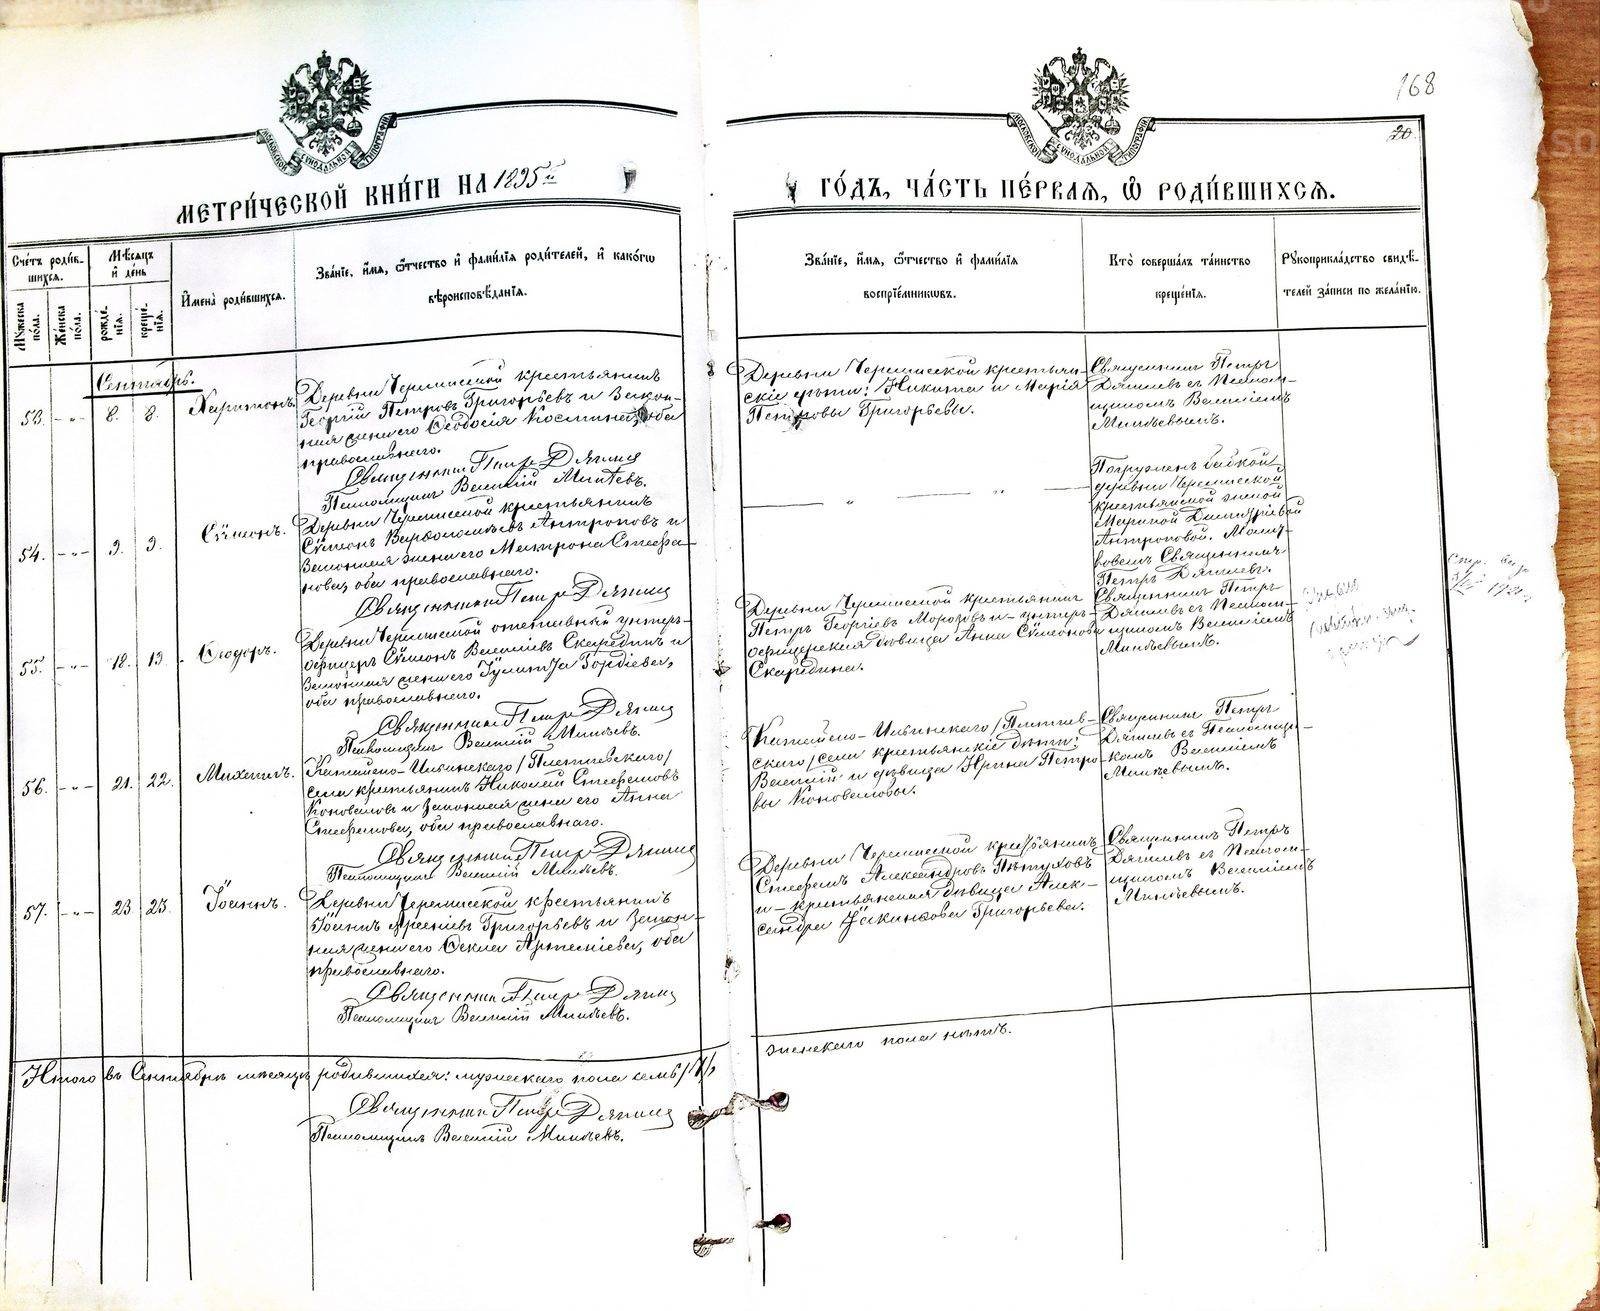 168
20
МОСКОВСКОЙ СѴНОДАЛЬНОЙ ТИПОГРАФІИ
МОСКОВСКОЙ СѴНОДАЛЬНОЙ ТИПОГРАФІИ
МЕТРИ́ЧЕСКОЙ КНИ́ГИ НА 1895й
ГО́ДЪ, ЧА́СТЬ ПЕ́РВАЯ, Ѽ РОДИ́ВШИХСЯ.
Сче́тъ роди́в-
шихся.
Мꙋ́жеска по́ла.
Же́нска по́ла.
Мѣ́сяцъ
и҆ де́нь
рожде́нїя.
креще́нїя.
И҆мена̀ роди́вшихся.
Зва́нїе, и҆́мя, ѻ҆́тчество и҆ фами́лїя роди́телей, и҆ како́гѡ
вѣроисповѣ́данїя.
Зва́нїе, и҆́мя, ѻ҆́тчество и҆ фами́лїя
воспрїе́мникѡвъ.
Кто̀ соверша́лъ та́инство
креще́нїя.
Рꙋкоприкла́дство свидѣ́-
телей за́писи по жела́нїю.
Сентябрь.
53. - „ - 8. 8. Харитонъ.
Деревни Черемисской крестьянинъ
Георгій Петровъ Григорьевъ и закон-
ная жена его Ѳеодосія Космина, оба
православнаго.
Священникъ Петръ Дягилевъ
Псаломщикъ Василій Минѣевъ.
Деревни Черемисской крестьян-
скіе дѣти: Никита и Марія
Петровы Григорьевы.
Священникъ Петръ
Дягилевъ съ Псалом-
щикомъ Василіемъ
Минѣевымъ.
54. - „ - 9. 9. Сѵмеонъ.
Деревни Черемисской крестьянинъ
Сѵмеонъ Варѳоломѣевъ Антроповъ и
законная жена его Матрона Стефа-
нова, оба православнаго.
Священникъ Петръ Дягилевъ
— „ — „ —
Погруженъ бабкой
деревни Черемисской
крестьянской женой
Мариной Димитріевой
Антроповой. Молит-
вовалъ Священникъ
Петръ Дягилевъ.
55. - „ - 12. 13. Ѳеодоръ.
Деревни Черемисской отставный унтеръ-
офицеръ Сѵмеонъ Василіевъ Скарединъ и
законная жена его Іулитта Гордіева,
оба православнаго.
Священникъ Петръ Дягилевъ
Псаломщикъ Василій Минѣевъ.
Деревни Черемисской крестьянинъ
Петръ Георгіевъ Морозовъ и-унтеръ-
офицерская дѣвица Анна Сѵмеонова
Скаредина.
Священникъ Петръ
Дягилевъ съ Псалом-
щикомъ Василіемъ
Минѣевымъ.
56. - „ - 21. 22. Михаилъ.
Катайско-Ильинскаго /Плетневскаго/
села крестьянинъ Николай Стефановъ
Коноваловъ и законная жена его Анна
Стефанова, оба православнаго.
Священникъ Петръ Дягилевъ
Псаломщикъ Василій Минѣевъ.
села крестьянскіе дѣти:
Василій и дѣвица Ирина Петро-
вы Коноваловы.
Священникъ Петръ
Дягилевъ съ Псаломщи-
комъ Василіемъ
Минѣевымъ.
57. - „ - 23. 23. Іоаннъ.
Деревни Черемисской крестьянинъ
Іоаннъ Арсеніевъ Григорьевъ и закон-
ная жена его Ѳекла Артеміева, оба
православнаго.
Священникъ Петръ Дягилевъ
Псаломщикъ Василій Минѣевъ.
Деревни Черемисской крестьянинъ
Стефанъ Александровъ Пѣтуховъ
и-крестьянская дѣвица Алек-
сандра Іакинѳова Григорьева.
Священникъ Петръ
Дягилевъ съ Псалом-
щикомъ Василіемъ
Минѣевымъ.
Итого въ Сентябрѣ мѣсяцѣ родившихся: мужескаго пола семь /7/,
женскаго пола нѣтъ.
Священникъ Петръ Дягилевъ
Псаломщикъ Василій Минѣевъ.